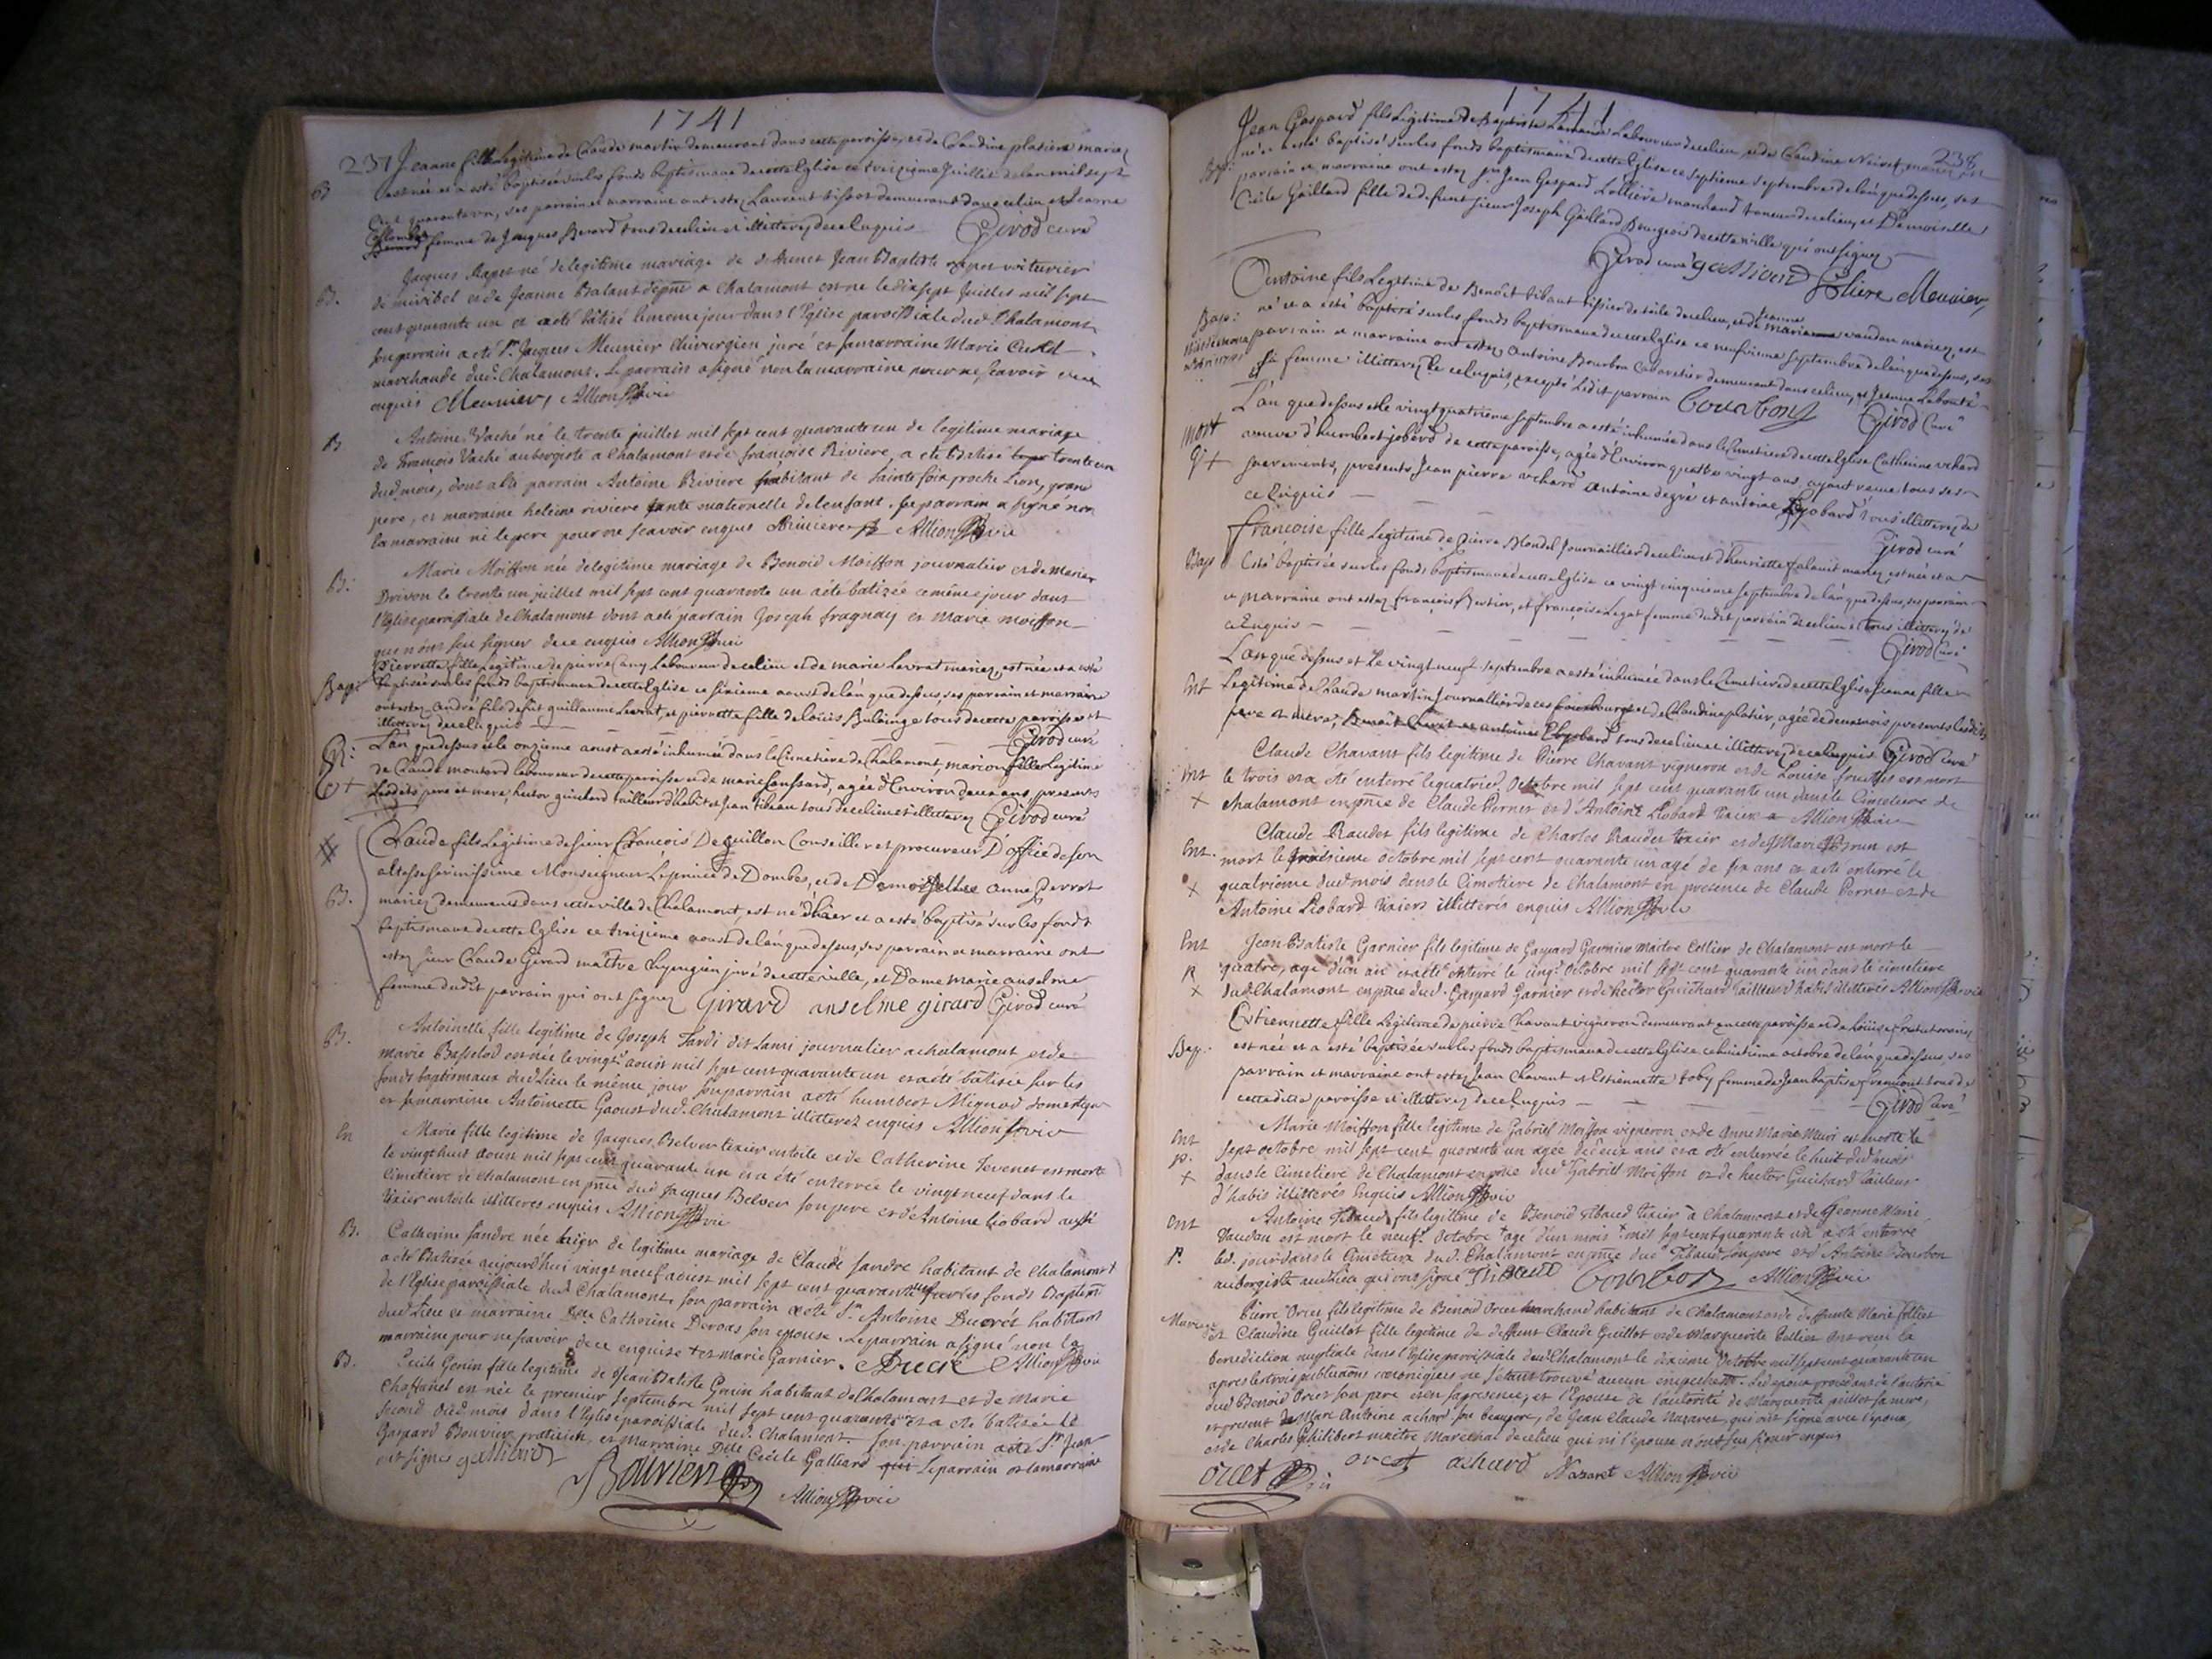 1741
237 Jeanne fille Legitime de Claude martin demeurant dans cette paroisse, et de Claudine platiere mariez
B est née et a esté baptisée sur les fonds baptismaux de cette Eglise ce treizieme Juillet de l'an mil sept
Cent quarante un, ses parrain et marraine ont estez Laurent tissot demeurant dans ce lieu, et Jeanne
Collomb femme de Jacques Benard tous de ce lieu et illitterez de ce Enquis Girod curé
Jacques né de legitime mariage de Jean Baptiste voiturier
B. de miribel et de Jeanne Balant a Chalamont est ne le dix sept Juillet mil sept
cent quarante un et a eté bâtisé le meme jour dans l'Eglise paroissiale dud. Chalamont
son parrain a eté Sr. Jacques Meunier chirurgien juré et sa marraine Marie
marchande dud. Chalamont. Le parrain a signé non la marraine pour ne sçavoir de ce
enquis Meunier, Allion vic
B Antoine Vaché né le trente juillet mil sept cent quarante un de legitime mariage
de François Vaché aubergiste a Chalamont et de françoise Riviere, a ete batisé trente un
dud. mois, dont a eté parrain Antoine Riviere habitant de Sainte foix proche Lion, grand
pere, et marraine helene riviere tante maternelle de l'enfant. Le parrain a signé non
la marraine ni le pere pour ne sçavoir enquis Riviere Allion vic
Marie Moiffon née de legitime mariage de Benoid Moiffon journalier et de Marie
B: Drivon le trente un juillet mil sept cens quarante un a eté batisée ce meme jour dans
l'Eglise paroissiale de Chalamont dont a eté parrain Joseph fragnay et Marie moiffon
qui n'ont sçu signer de ce enquis Allion vic
Pierrette fille Legitime de pierre Cany Laboureur de ce lieu et de marie Levrat mariez, est née et a esté
Bap: baptisée sur les fonds baptismaux de cette Eglise ce sixieme aoust de l'an que dessus, ses parrain et marraine
ont estez andré fils de fut guillaume Levrat, et pierrette fille de loüis Bulinge tous de cette paroisse et
illitterez de ce Enquis Girod curé
L'an que dessus et le onzieme aoust a esté inhumée dans le Cimetiere de Chalamont, marion fille Legitime
de Claude moutard laboureur de cette paroisse et de marie Caussard, agée d'Environ deux ans, presents
Lesdits pere et mere, hector guichard tailleur d'habit et Jean tibeau tous de ce lieu et illitterez Girod curé
Claude fils Legitime de sieur François De guillon Conseiller et procureur D'office de son
altesse serinissime Monseigneur Le prince de Dombes, et de Demoiselle anne Perrot
B. mariez demeurants dans cette ville de Chalamont, est né d'hier et a esté baptisé sur les fonds
baptismaux de cette Eglise ce treizieme aoust de l'an que dessus, ses parrain et marraine ont
estez sieur Claude Girard maître Chyrugien juré de cette ville, et Dame marie anselme
femme dudit parrain qui ont signez Girard anselme girard Girod curé
B. Antoinette fille legitime de Joseph Tardi dit Lami journalier a chalamont et de
marie Basselod est née le vingt aoust mil sept cent quarante un et a eté bâtisée sur les
fonds baptismaux dud. Lieu le même jour son parrain a eté humbert Mignod domestique
et sa marraine Antoinette Gaoust dud. Chalamont illitterez enquis Allion vic
En Marie fille legitime de Jacques Belver texier en toile et de Catherine Tevenet est morte
le vingt huit aoust mil sept cent quarante un et a été enterrée le vingt neuf dans le
Cimetiere de Chalamont en pnce dud. Jacques Belver son pere et de Antoine Liobard aussi
texier en toile illitteres enquis Allion vic
B. Catherine sandre née hier de legitime mariage de Claude sandre habitant de Chalamont
a eté Batisée aujourd'hui vingt neuf aoust mil sept cent quarante un sur les fonds Baptism
de l'Eglise paroissiale dud. Chalamont, son parrain a eté Sr. Antoine Ducret habitant
dud. Lieu et marraine Dlle Catherine Dervas son epouse. Le parrain a signé non la
marraine pour ne sçavoir de ce enquise et marie Garnier. Ducré Allion vic
B. Cecile Genin fille legitime de Jean Batiste Genin habitant de Chalamont et de Marie
Chaffanel est née le premier septembre mil sept cent quarante un a ete batisée le
second dud. mois dans l'Eglise paroissiale dud. Chalamont. son parrain a eté Sr. Jean
Gaspard Bouvier praticien, et Marraine Dlle Cecile Galliard Le parrain et la marraine
ont signes galliard Bouvier
Allion vic
1741
238
Jean Gaspard fils Legitime de Baptiste Laboureur de ce lieu, et de Claudine Neiret mariez, est
Bap: né et a esté baptisé sur les fonds baptismaux de cette Eglise ce septieme septembre de l'an que dessus, ses
parrain et marraine ont estez sr. Jean Gaspard Lolliere marchand tanneur de ce lieu, et Demoiselle
Cecile Gaillard fille de defunt sieur Joseph Gaillard Bourgeois de cette ville qui ont signez
Girod curé galliard Loliere Meunier
Antoine fils Legitime de Benoît tibaut tissier de toile de ce lieu, et de Jeanne marie vaudan mariez, est
Bap: né et a esté baptisé sur les fonds baptismaux de cette Eglise ce neufvieme septembre de l'an que dessus, ses
parrain et marraine ont estez Antoine Bourbon Cabaretier demeurant dans ce lieu, et Jeanne Laboute
sa femme illitterez de ce Enquis, excepté ledit parrain Bourbon Girod Curé
L'an que dessus et le vingt quatrieme septembre a esté inhumée dans le Cimetiere de cette Eglise Catherine uchard
mort veuve d'humbert jobard de cette paroisse, agée d'Environ quatre vingt ans, ayant receu tous ses
sacrements, presents, Jean pierre uchard antoine degré et antoine Liobard tous illitterez de
ce Enquis
Girod curé
francoise fille Legitime de pierre Blondel Journaillier de ce lieu et d'henriette falavit mariez, est née et a
Bap esté baptisée sur les fonds baptismaux de cette Eglise ce vingt cinquieme septembre de l'an que dessus, ses parrain
et marraine ont estez françois Bertier, et françoise Legat femme dudit parrain de ce lieu et tous illitterez de
ce Enquis Girod Curé
L'an que dessus et le vingt neuf septembre a esté inhumée dans le Cimetiere de cette Eglise Jeanne fille
Ent Legitime de Claude martin Journallier de ces fauxbourgs et de Claudine platier, agée de deux mois presents lesdits
pere et mere, Benoit et antoine Liobard tous de ce lieu et illitterez de ce Enquis Girod curé
Claude Chavant fils legitime de Pierre Chavant vigneron et de Louise est mort
Ent le trois et a eté enterré le quatrieme Octobre mil sept cent quarante un dans le Cimetiere de
x chalamont en pnce de Claude Pernet et d'Antoine Liobard texier Allion vic
Claude Raudet fils legitime de Charles Raudet texier et de Marie Brun est
Ent. mort le troisieme octobre mil sept cent quarante un agé de six ans et a eté enterré le
x quatrieme dud. mois dans le Cimetiere de Chalamont en presence de Claude Pernet et de
Antoine Liobard texiers illitteris enquis Allion vic
Ent Jean Batiste Garnier fils legitime de Gaspard Garnier maitre Cellier de Chalamont est mort le
P. quatre, age d'un an et a eté enterré le cinq Octobre mil sept cent quarante un dans le cimetiere
x dud. Chalamont en pnce dud. Gaspard Garnier et de hector Guichard tailleur d'habits illitterés Allion vic
Estiennette fille Legitime de pierre Chavant vigneron demeurant en cette paroisse et de Loüise mariez
Bap. est née et a esté baptisée sur les fonds baptismaux de cette Eglise ce huitieme octobre de l'an que dessus, ses
parrain et marraine ont estez Jean Chavant et Estiennette toby femme de Jean baptiste fremiont tous de
cette ditte paroisse et illitterez de ce Enquis Girod Curé
Marie Moiffon fille legitime de Gabriel Moiffon vigneron et de Anne Marie Muri est morte le
Ent sept octobre mil sept cent quarante un agée de deux ans et a eté enterrée le huit dud. mois
p. dans le Cimetiere de Chalamont en pnce dud. Gabriel Moiffon et de hector Guichard tailleur
x d'habis illitterés Enquis Allion vic
Ent Antoine Tibaud fils legitime de Benoid tibaud texier a Chalamont et de Jeanne Marie
Vaudan est mort le neuf Octobre age d'un mois mil sept cent quarante un a eté enterré
P. led. jour dans le Cimetiere dud. Chalamont en pnce dud. Tibaud son pere et d'Antoine Bourbon
aubergiste aud. lieu qui ont signé Thibaud Bourbon Allion vic
Mariage Pierre Orcet fils legitime de Benoid Orcet marchand habitant de Chalamont et de deffunte Marie follier
et Claudine Guillot fille legitime de deffunt Claude Guillot et de Marguerite Pelliet ont reçu la
benediction nuptiale dans l'Eglise paroissiale dud. Chalamont le dixieme Octobre mil sept cent quarante un
apres les trois publications canoniques ne s'etant trouvé aucun empechem. Led. epoux procedant de l'autorité
dud. Benoid Orcet son pere et en sa presence, et l'Epouse de l'autorité de Marguerite sa mere,
et present de Marc Antoine achard son beaupere, de Jean Claude Nazaret, qui ont signé avec l'epoux,
et de Charles Philibert maitre Marechal de ce lieu qui ni l'epouse n'ont sçu signer enquis
orcet orcet achard Nazaret Allion vic